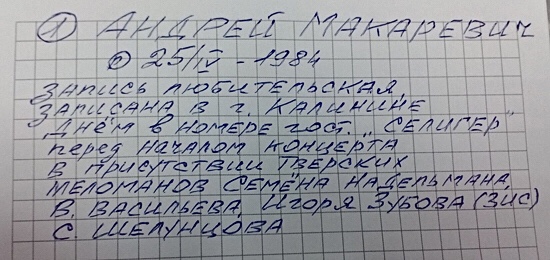 ① АНДРЕЙ МАКАРЕВИЧ
℗ 25/IV - 1984
ЗАПИСЬ ЛЮБИТЕЛЬСКАЯ,
ЗАПИСАНА В г. КАЛИНИНЕ
ДНЁМ В НОМЕРЕ ГОСТ. „СЕЛИГЕР"
ПЕРЕД НАЧАЛОМ КОНЦЕРТА
В ПРИСУТСТВИИ ТВЕРСКИХ
МЕЛОМАНОВ СЕМЁНА НАДЕЛЬМАНА,
В. ВАСИЛЬЕВА, ИГОРЯ ЗУБОВА (ЗИС)
С. ШЕЛУНЦОВА